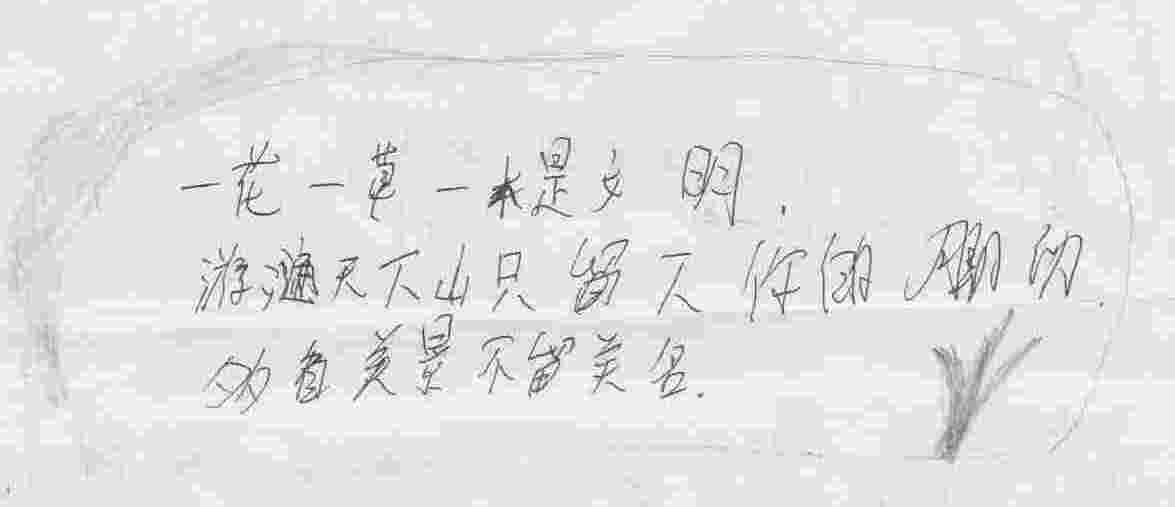 一花一草一木是文明.
游遍天下山只留下你的脚印.
多看美景不留美名.